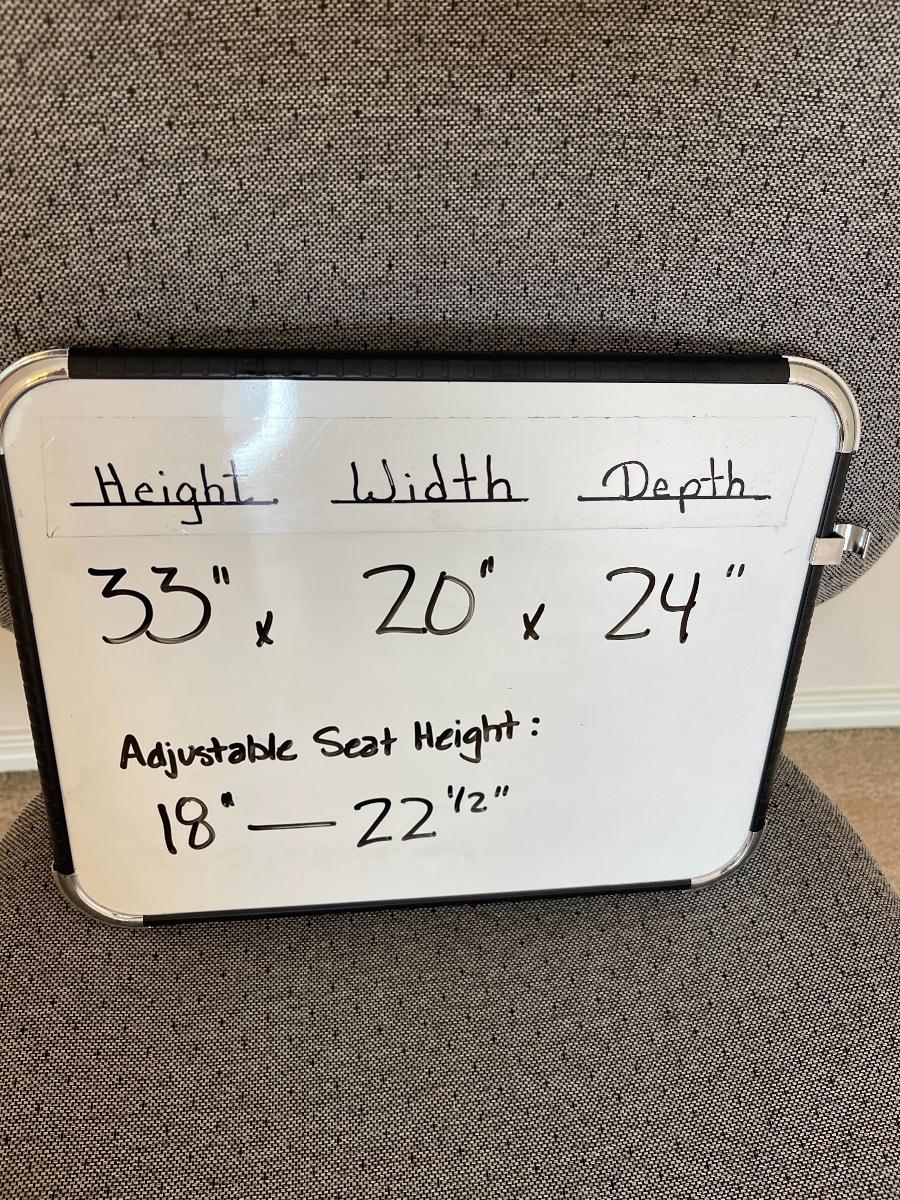 Height Width Depth
33" x 20" x 24"
Adjustable Seat Height:
18" — 22 1/2"